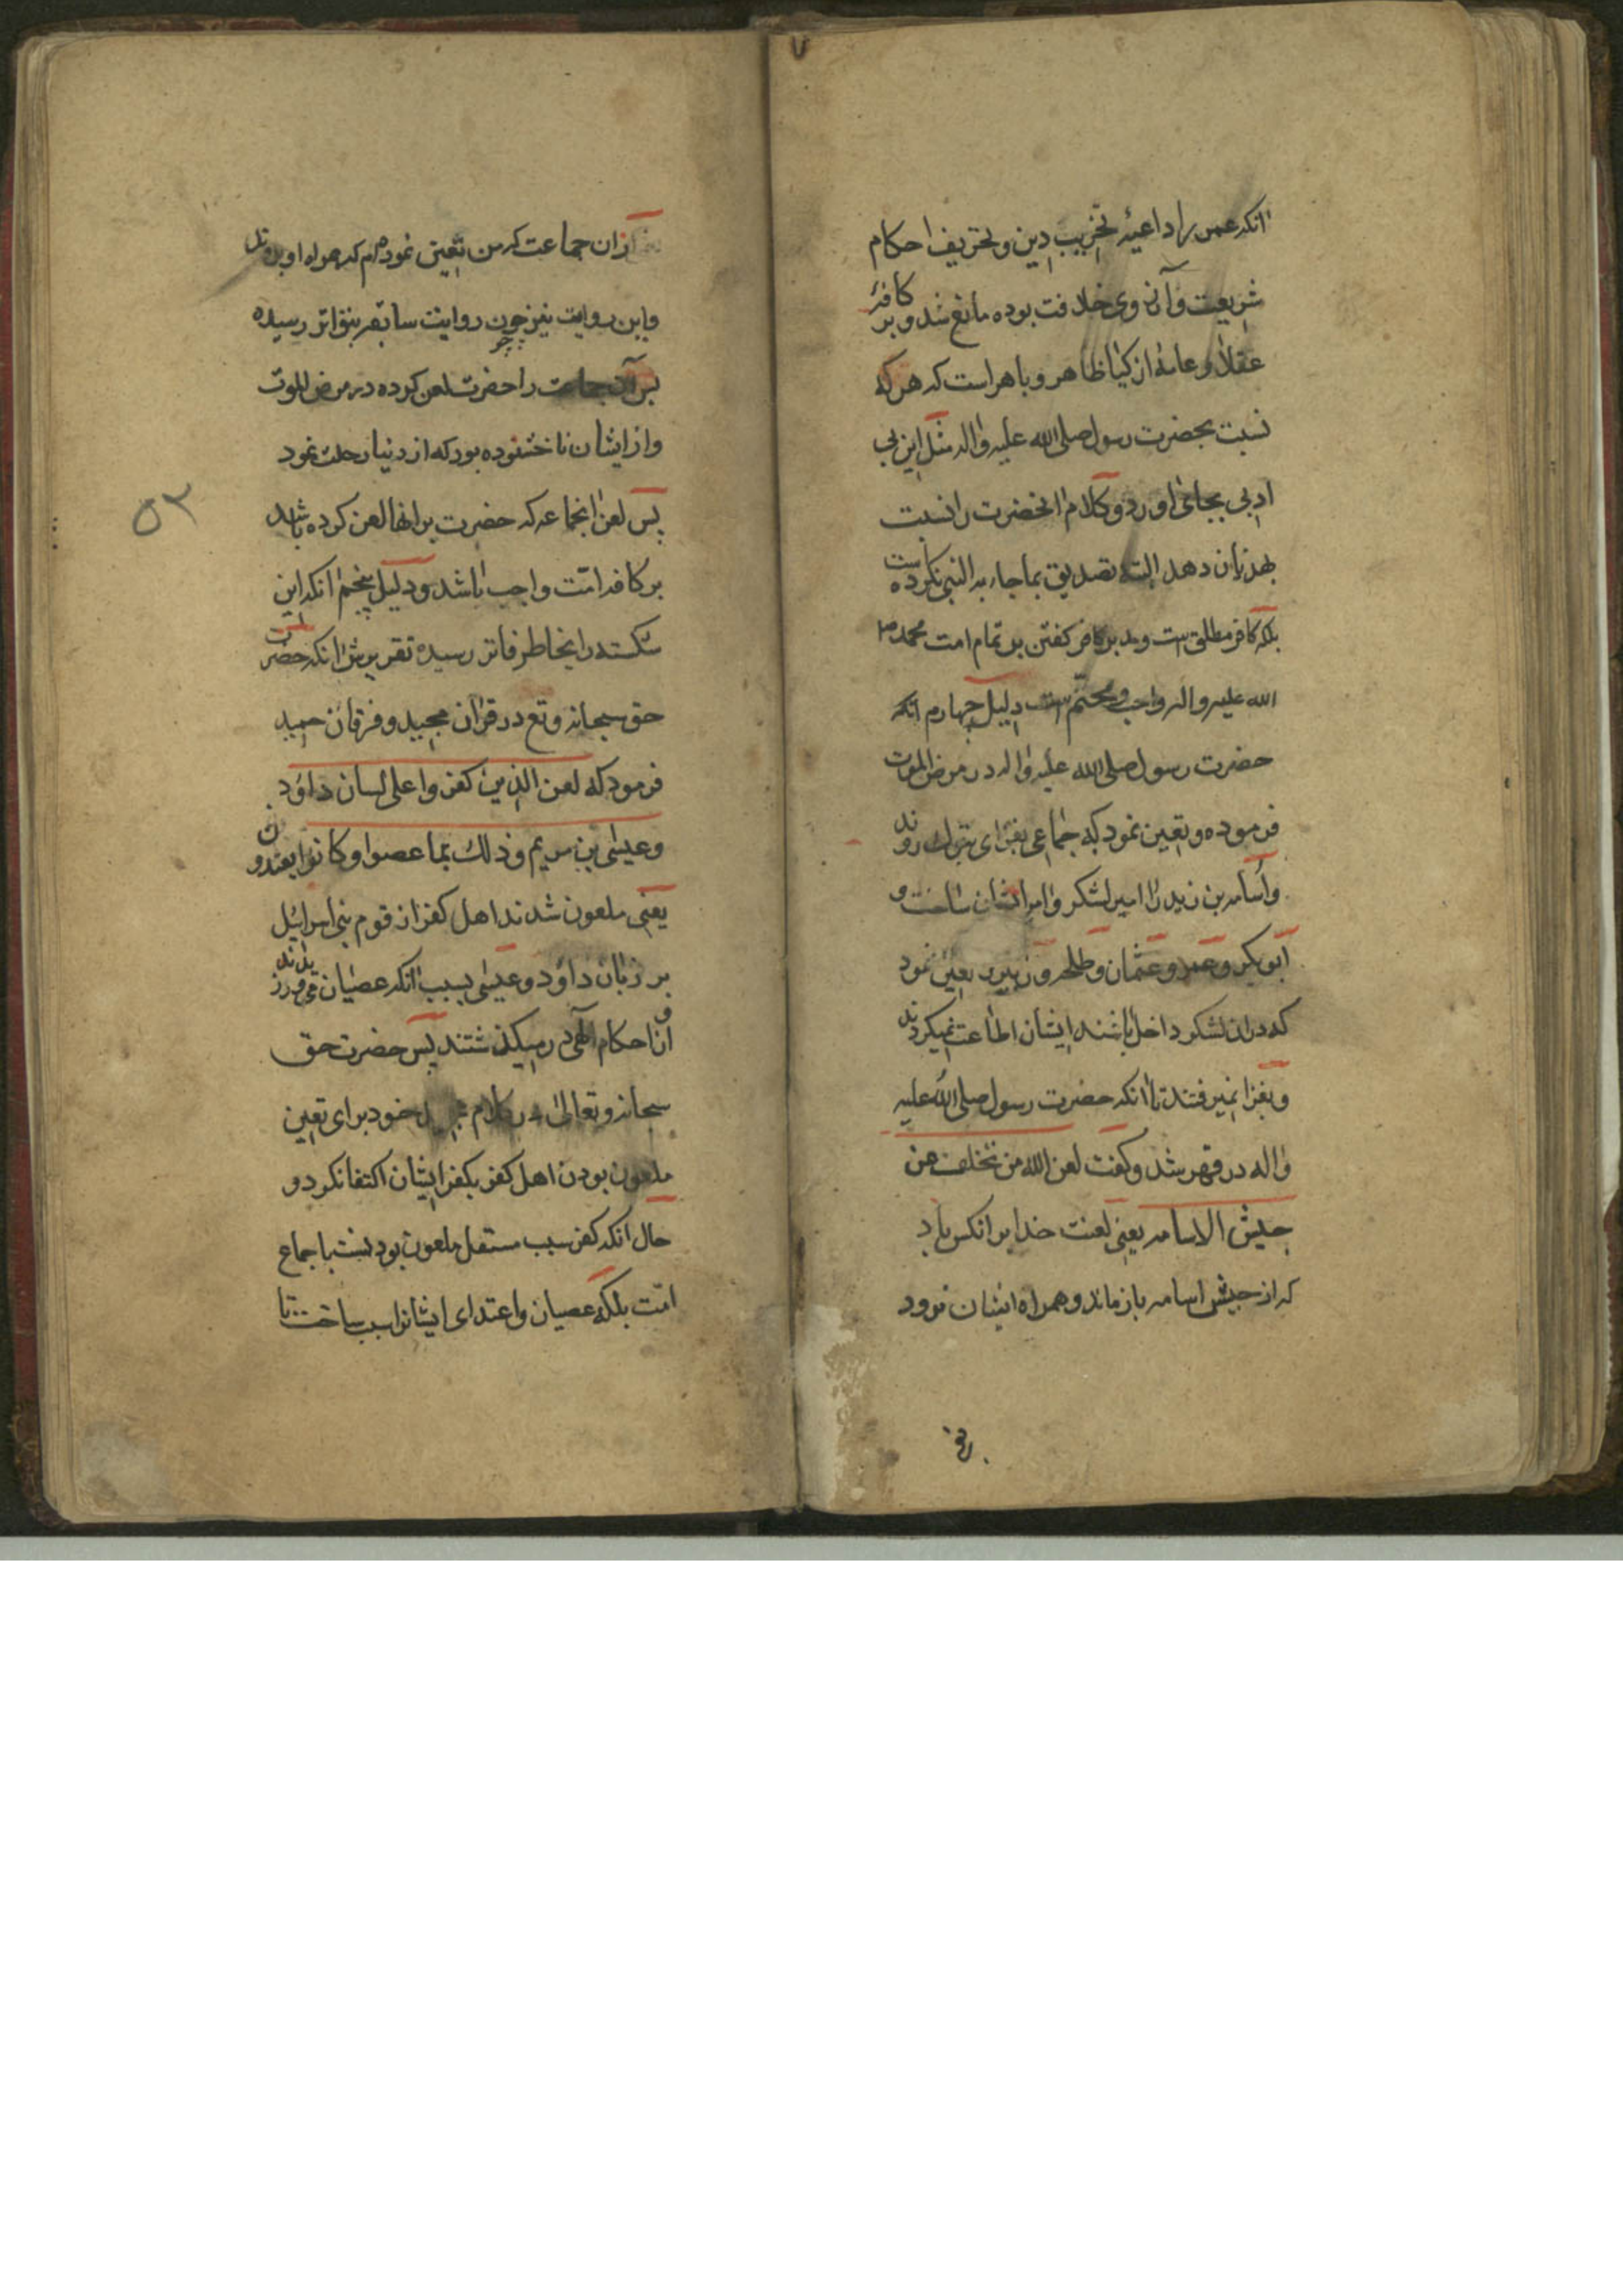 انکه عمر را داعیهٔ تخریب دین و تحریف احکام
شریعت و آرزوی خلافت بوده مانع شد و بر کافهٔ
عقلا و عامهٔ ازکیا ظاهر و باهر است که هر که
نسبت بحضرت رسول صلی الله علیه واله مثل این بی
ادبی بجای اورد و کلام انحضرت را نسبت
بهذیان دهد البته تصدیق بما جاء به النبی نکرده است
بلکه کافر مطلق است و بر کافر کفتن بر تمام امت محمد ص
الله علیه واله واجب و محتم است دلیل چهارم انکه
حضرت رسول صلی الله علیه واله در مرض الموت
فرموده و تعیین نمود که جماعی بغزای تبوک روند
و اسامه بن زید را امیر لشکر و امیر ایشان ساخت و
ابوبکر و عمر و عثمان و طلحه و زبیر تعیین نمود
که دران لشکر داخل باشند ایشان اطاعت نمیکردند
و بغزا نمیرفتند تا انکه حضرت رسول صلی الله علیه
واله در قهر شد و کفت لعن الله من تخلف عن
جیش الاسامه یعنی لعنت خدا بر انکس باد
که از جیش اسامه باز ماند و همراه ایشان نرود
از ان جماعت که من تعیین نموده ام که همراه او بروند
و این روایت نیز چون روایت سابقه بتواتر رسیده
پس آن جماعت را حضرت لعن کرده در مرض الموت
و از ایشان ناخشنود بود که از دنیا رحلت نمود
۵۲
پس لعن انجماعه که حضرت بر انها لعن کرده باشد
بر کافه امت واجب باشد و دلیل پنجم انکه این
شکسته را بخاطر فاتر رسیده تقریرش انکه حضرت
حق سبحانه و تع در قران مجید و فرقان حمید
فرمود که لعن الذین کفروا علی لسان داود
و عیسی بن مریم و ذلك بما عصوا و کانوا یعتدون
یعنی ملعون شدند اهل کفر از قوم بنی اسرائیل
بر زبان داود و عیسی بسبب انکه عصیان می ورزیدند
و از احکام الهی در میکذشتند پس حضرت حق
سبحانه و تعالی در کلام مجید خود برای تعین
ملعون بودن اهل کفر بکفر ایشان اکتفا نکرد و
حال انکه کفر سبب مستقل ملعون بودنست باجماع
امت بلکه عصیان و اعتدای ایشانرا سبب ساخت تا